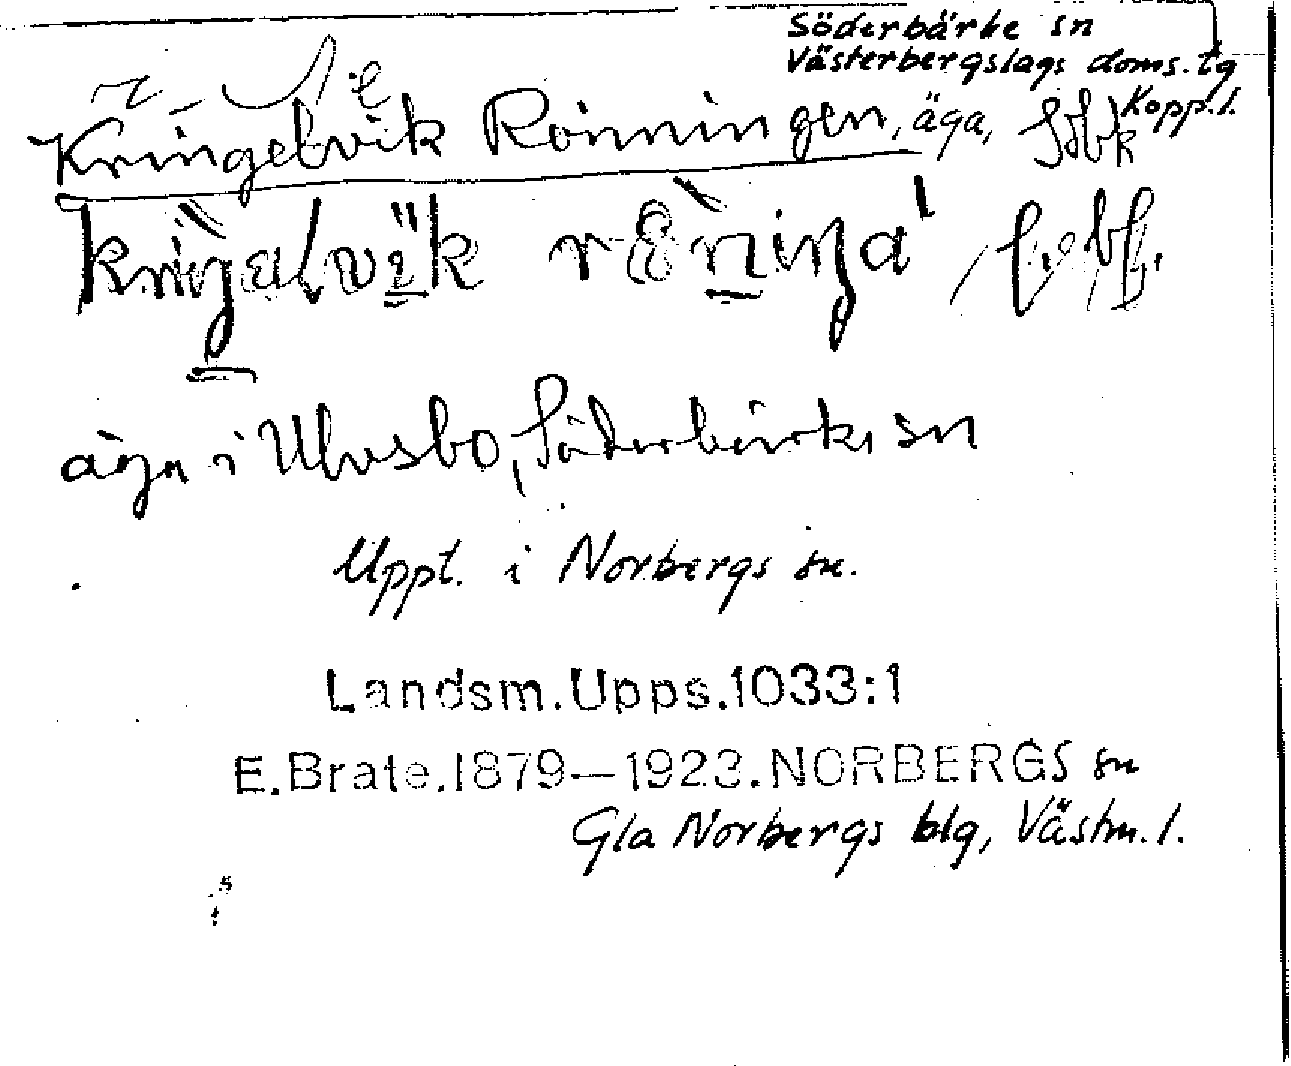 Söderbärke sn
Västerbergslags doms. tg
Kopp. l.
Kringelvik Rönningen, äga, Söbk
äga i Ulvsbo, Söderbärke sn
Uppt. i Norbergs sn.
Landsm.Upps.1033:1
E.Brate.1879—1923.NORBERGS sn
Gla Norbergs blg, Västm. l.